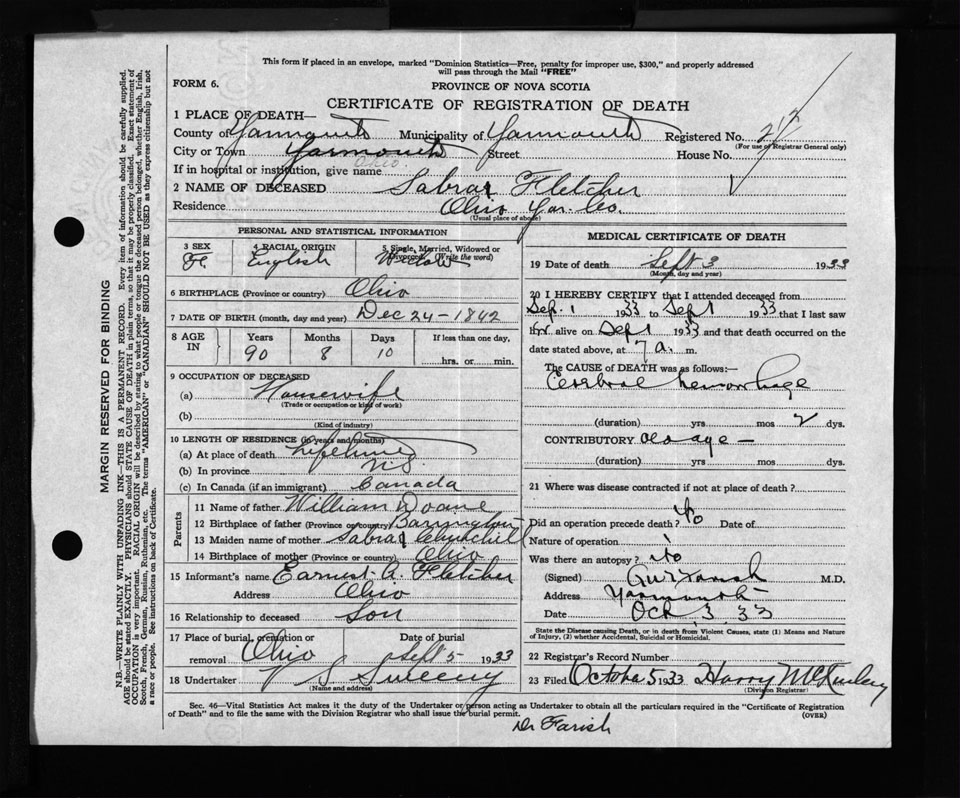 This form if placed in an envelope, marked "Dominion Statistics—Free, penalty for improper use, $300," and properly addressed
will pass through the Mail "FREE"
FORM 6.
PROVINCE OF NOVA SCOTIA
CERTIFICATE OF REGISTRATION OF DEATH
1 PLACE OF DEATH—
County of Yarmouth Municipality of Yarmouth Registered No.
(For use of Registrar General only)
City or Town Yarmouth Street House No.
Ohio
If in hospital or institution, give name
2 NAME OF DECEASED Sabra Fletcher
Residence Ohio Yar. Co.
(Usual place of abode)
PERSONAL AND STATISTICAL INFORMATION
3 SEX 4 RACIAL ORIGIN 5 Single, Married, Widowed or Divorced (Write the word)
Fe. English Widow
6 BIRTHPLACE (Province or country) Ohio
7 DATE OF BIRTH (month, day and year) Dec 24 - 1842
8 AGE IN Years Months Days If less than one day,
90 8 10 hrs. or min.
9 OCCUPATION OF DECEASED
(a) Housewife
(Trade or occupation or kind of work)
(b)
(Kind of industry)
10 LENGTH OF RESIDENCE (in years and months)
(a) At place of death lifetime
(b) In province N.S.
(c) In Canada (if an immigrant) Canada
Parents
11 Name of father William Doane
12 Birthplace of father (Province or country) Barrington
13 Maiden name of mother Sabra Churchill
14 Birthplace of mother (Province or country) Ohio
15 Informant's name Earnest A. Fletcher
Address Ohio
16 Relationship to deceased Son
17 Place of burial, cremation or removal Ohio Date of burial Sept 5 1933
18 Undertaker V S Sweeny
(Name and address)
MEDICAL CERTIFICATE OF DEATH
19 Date of death Sept 3 1933
(Month, day and year)
20 I HEREBY CERTIFY that I attended deceased from
Sep. 1 1933 to Sept 1933 that I last saw
her alive on Sept 1 1933 and that death occurred on the
date stated above, at 7 a. m.
The CAUSE OF DEATH was as follows:—
Cerebral hemorrhage
(duration) yrs mos 2 dys.
CONTRIBUTORY old age —
(duration) yrs mos dys.
21 Where was disease contracted if not at place of death?
Did an operation precede death? No Date of
Nature of operation
Was there an autopsy? No
(Signed) Farish M.D.
Address Yarmouth
Date Oct. 3. 33
State the Disease causing Death, or in death from Violent Causes, state (1) Means and Nature
of Injury, (2) whether Accidental, Suicidal or Homicidal.
22 Registrar's Record Number
23 Filed October 5 1933 Harry McKinley
(Division Registrar)
Sec. 46—Vital Statistics Act makes it the duty of the Undertaker or person acting as Undertaker to obtain all the particulars required in the "Certificate of Registration
of Death" and to file the same with the Division Registrar who shall issue the burial permit. (OVER)
Dr Farish
MARGIN RESERVED FOR BINDING
N.B.—WRITE PLAINLY WITH UNFADING INK—THIS IS A PERMANENT RECORD. Every item of information should be carefully supplied.
AGE should be stated EXACTLY. PHYSICIANS should STATE CAUSE OF DEATH in plain terms, so that it may be properly classified. Exact statement of
OCCUPATION is very important. RACIAL ORIGIN will be described by stating to what people or tongue the deceased person belonged, whether English, Irish,
Scotch, French, German, Russian, Ruthenian, etc. The terms "AMERICAN" or "CANADIAN" SHOULD NOT BE USED as they express citizenship but not
a race or people. See instructions on back of Certificate.